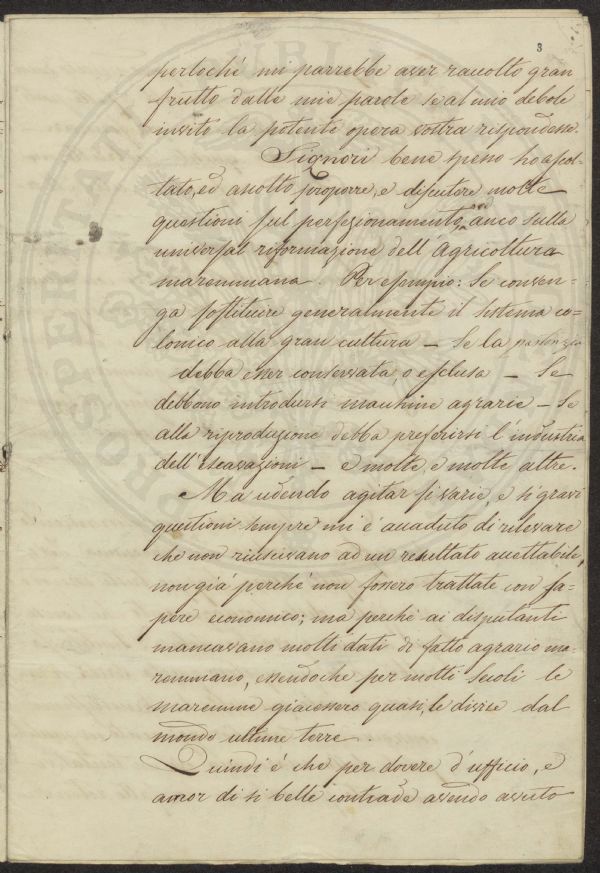 3
perlochè mi parrebbe aver raccolto gran
frutto dalle mie parole se al mio debole
invito la potente opera vostra rispondesse.
Signori bene spesso ho ascol-
tato, ed ascolto proporre, e discutere molte
questioni sul perfezionamento, anco sulla
universal riformazione dell'Agricoltura
maremmana. Per esempio: Se conven-
ga sostituire generalmente il sistema co-
lonico alla gran cultura — Se la
debba esser conservata, o esclusa — Se
debbono introdursi macchine agrarie — Se
alla riproduzione debba preferirsi l'industria
dell'escavazioni — e molte, e molte altre.
Ma udendo agitar sì varie, e sì gravi
questioni sempre mi è accaduto di rilevare
che non riuscivano ad un resultato accettabile,
non già perchè non fossero trattate con sa-
pere economico; ma perchè ai disputanti
mancavano molti dati di fatto agrario ma-
remmano, essendoche per molti Secoli le
maremme giacessero quasi, le divise dal
mondo ultime terre.
Quindi è che per dovere d'ufficio, e
amor di sì belle contrade avendo avuto